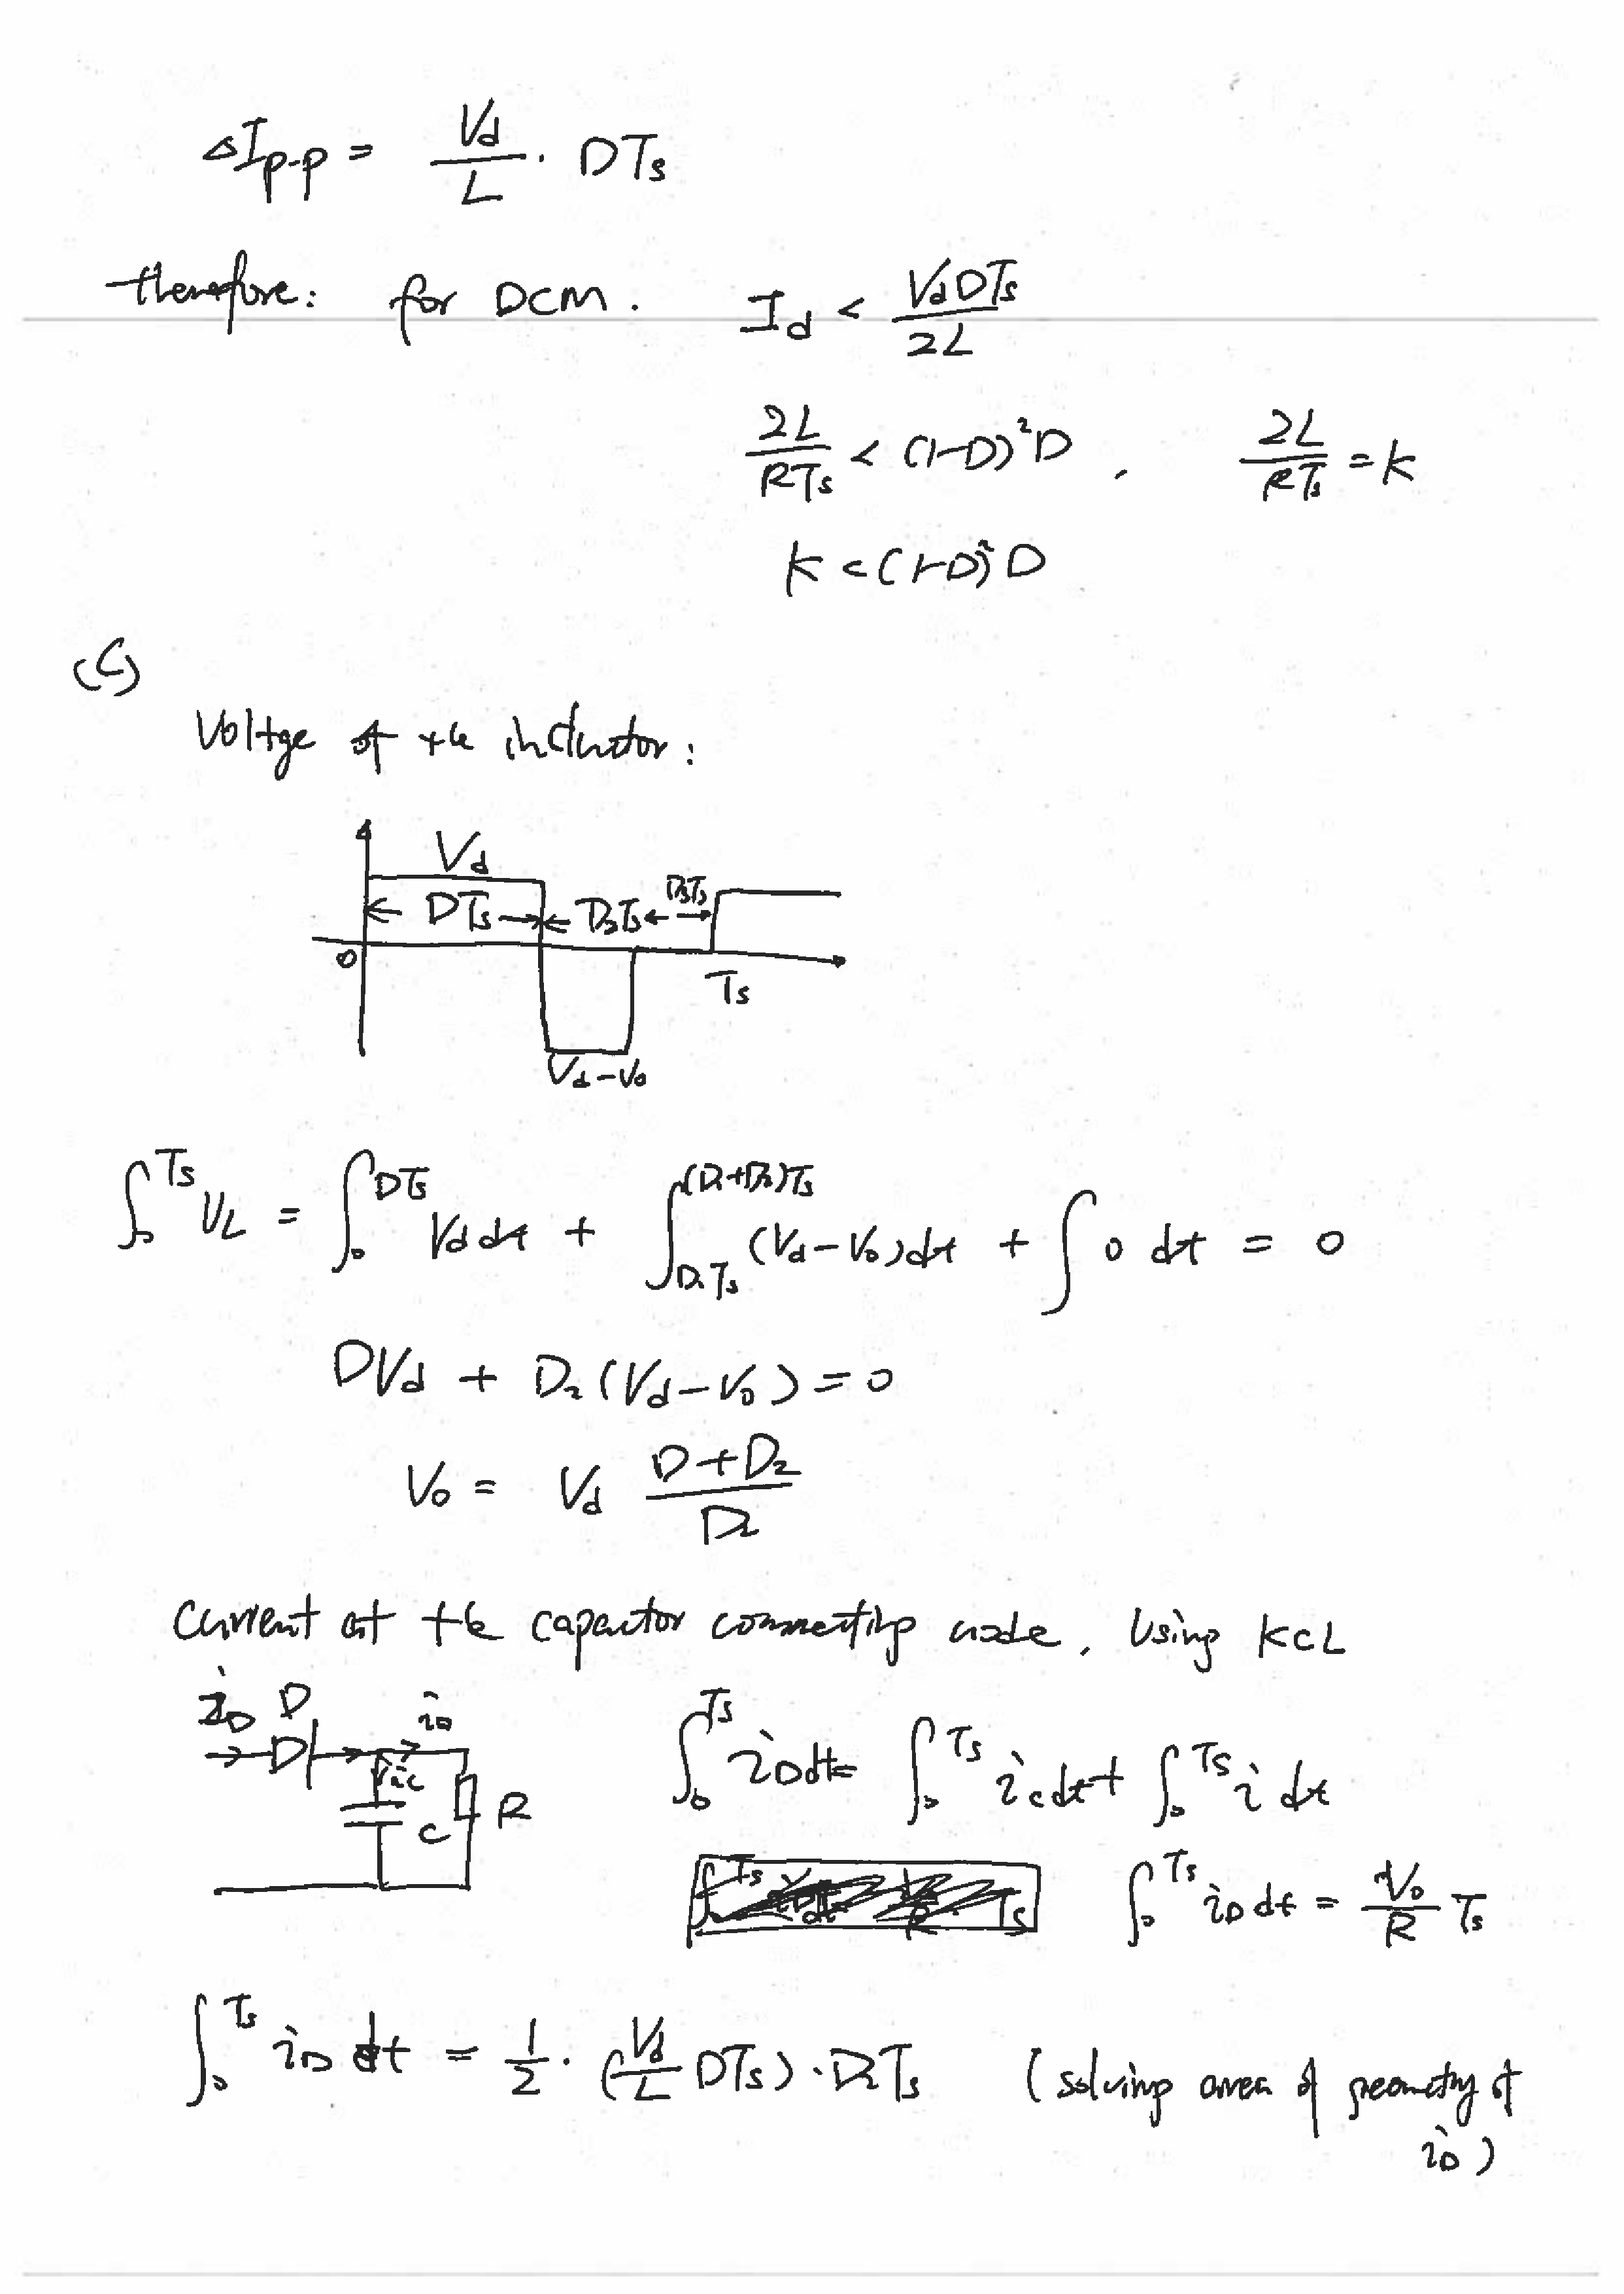 ΔI_{p-p} = \frac{V_d}{L} · DT_s
therefore: for DCM. I_d < \frac{V_d DT_s}{2L}
\frac{2L}{RT_s} < (1-D)^2 D , \frac{2L}{RT_s} = k
k < (1-D)^2 D
(C)
Voltge of the inductor:
V_d
DT_s D_2T_s D_3T_s
0 T_s
V_d - V_o
∫_0^{T_s} V_L = ∫_0^{DT_s} V_d dt + ∫_{D_1T_s}^{(D_1+D_2)T_s} (V_d - V_o) dt + ∫ 0 dt = 0
DV_d + D_2 (V_d - V_o) = 0
V_o = V_d \frac{D+D_2}{D_2}
Current at the capactor connecting node. Using KCL
i_D D i_o
i_c
C R
∫_0^{T_s} i_D dt = ∫_0^{T_s} i_c dt + ∫_0^{T_s} i dt
∫_0^{T_s} i_D dt = \frac{V_o}{R} T_s
∫_0^{T_s} i_D dt = \frac{1}{2} · (\frac{V_d}{L} DT_s) · D_2T_s (solving area of geometry of i_D)